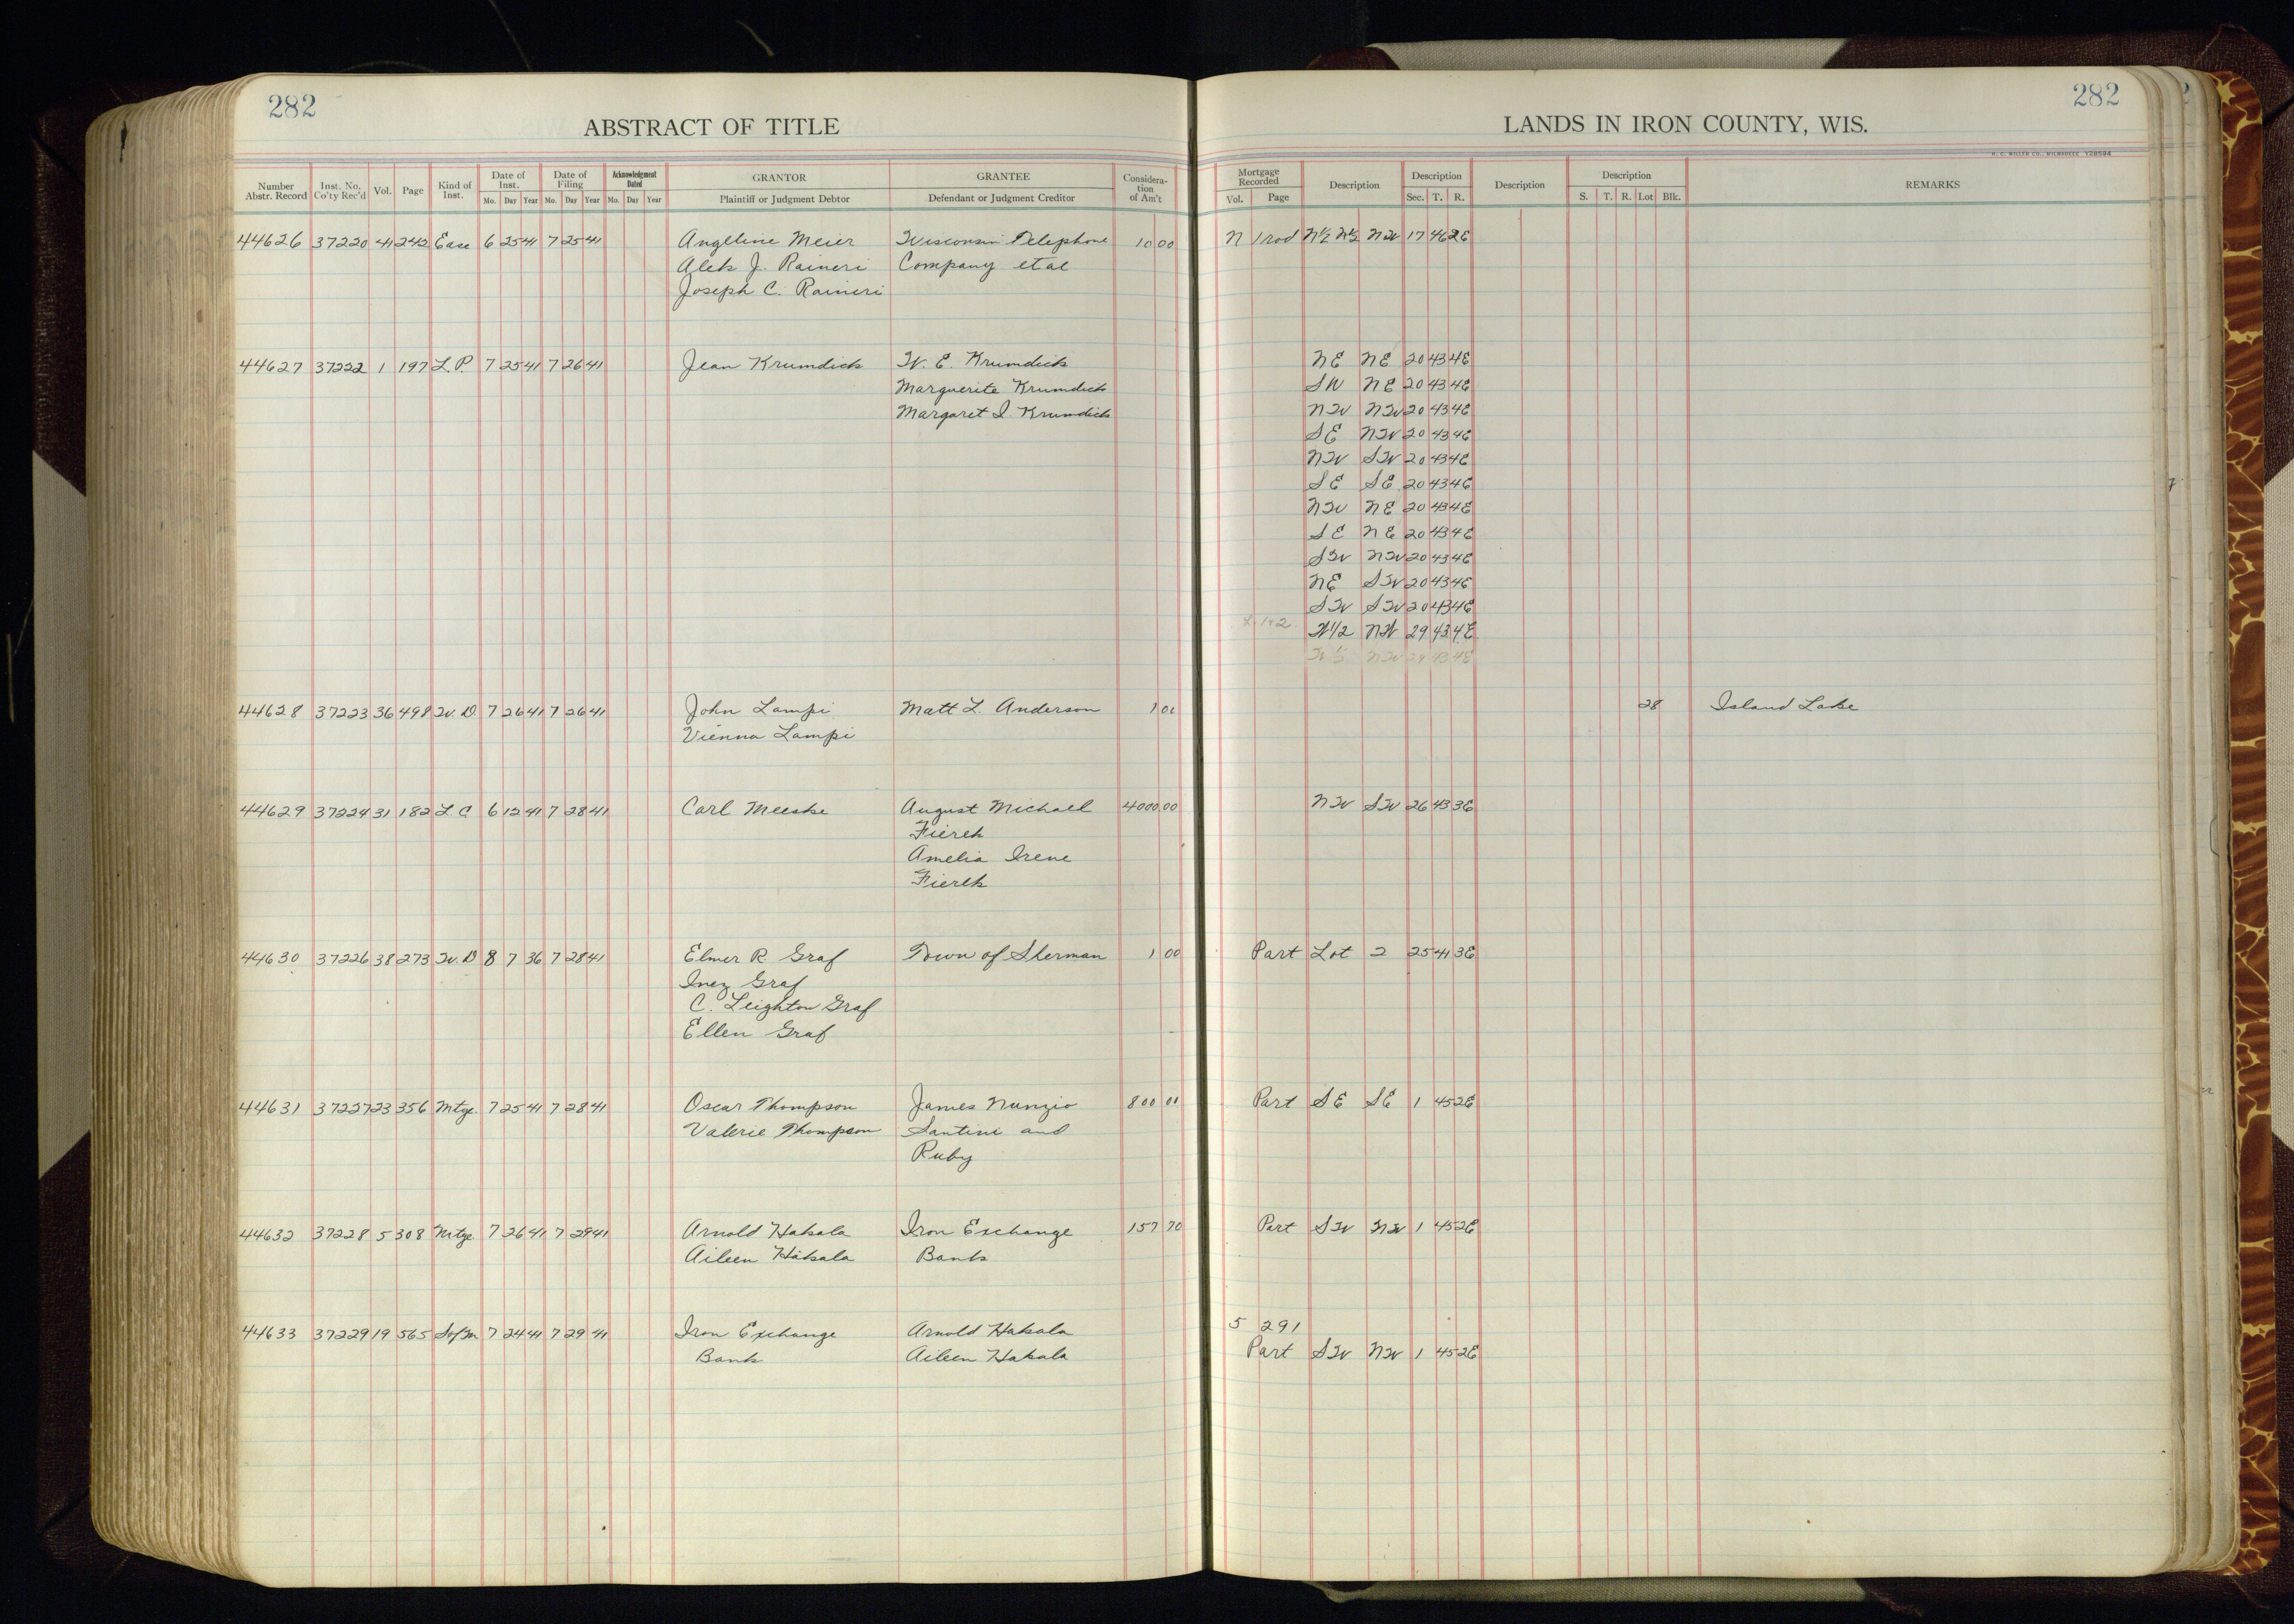 282
ABSTRACT OF TITLE
Number Abstr. Record Inst. No. Co'ty Rec'd Vol. Page Kind of Inst. Date of Inst. Mo. Day Year Date of Filing Mo. Day Year Acknowledgment Dated Mo. Day Year GRANTOR Plaintiff or Judgment Debtor GRANTEE Defendant or Judgment Creditor Considera- tion of Am't
44626 37220 41 242 Ease 6 25 41 7 25 41 Angeline Meier Wisconsin Telephone 10 00
Alek J. Raineri Company et al
Joseph C. Raineri
44627 37222 1 197 L.P. 7 25 41 7 26 41 Jean Krumdick W. E. Krumdick
Marguerite Krumdick
Margaret I. Krumdick
44628 37223 36 498 W. D. 7 26 41 7 26 41 John Lampi Matt L. Anderson 1 00
Vienna Lampi
44629 37224 31 182 L. C 6 12 41 7 28 41 Carl Meeske August Michael 4000 00
Fierek
Amelia Irene
Fierek
44630 37226 38 273 W. D 8 7 36 7 28 41 Elmer R Graf Town of Sherman 1 00
Inez Graf
C. Leighton Graf
Ellen Graf
44631 37227 23 356 Mtge 7 25 41 7 28 41 Oscar Thompson James Nunzio 800 00
Valerie Thompson Santini and
Ruby
44632 37228 5 308 Mtge 7 26 41 7 29 41 Arnold Hakala Iron Exchange 157 70
Aileen Hakala Bank
44633 37229 19 565 S of M 7 24 41 7 29 41 Iron Exchange Arnold Hakala
Bank Aileen Hakala
282
LANDS IN IRON COUNTY, WIS.
H. C. MILLER CO., MILWAUKEE Y28594
Mortgage Recorded Vol. Page Description Description Sec. T. R. Description Description S. T. R. Lot Blk. REMARKS
N 1 rod N½ N½ NW 17 46 2E
NE NE 20 43 4E
SW NE 20 43 4E
NW NW 20 43 4E
SE NW 20 43 4E
NW SW 20 43 4E
SE SE 20 43 4E
NW NE 20 43 4E
SE NE 20 43 4E
SW NW 20 43 4E
NE SW 20 43 4E
SW SW 20 43 4E
W 1/2 NW 29 43 4E
W ½ NW 29 43 4E
28 Island Lake
NW SW 26 43 3E
Part Lot 2 25 41 3E
Part SE SE 1 45 2E
Part SW NW 1 45 2E
5 291
Part SW NW 1 45 2E